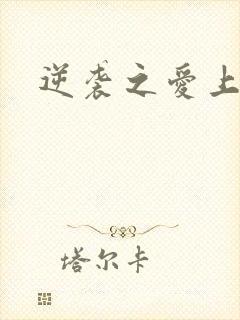 逆袭之爱上
塔尔卡